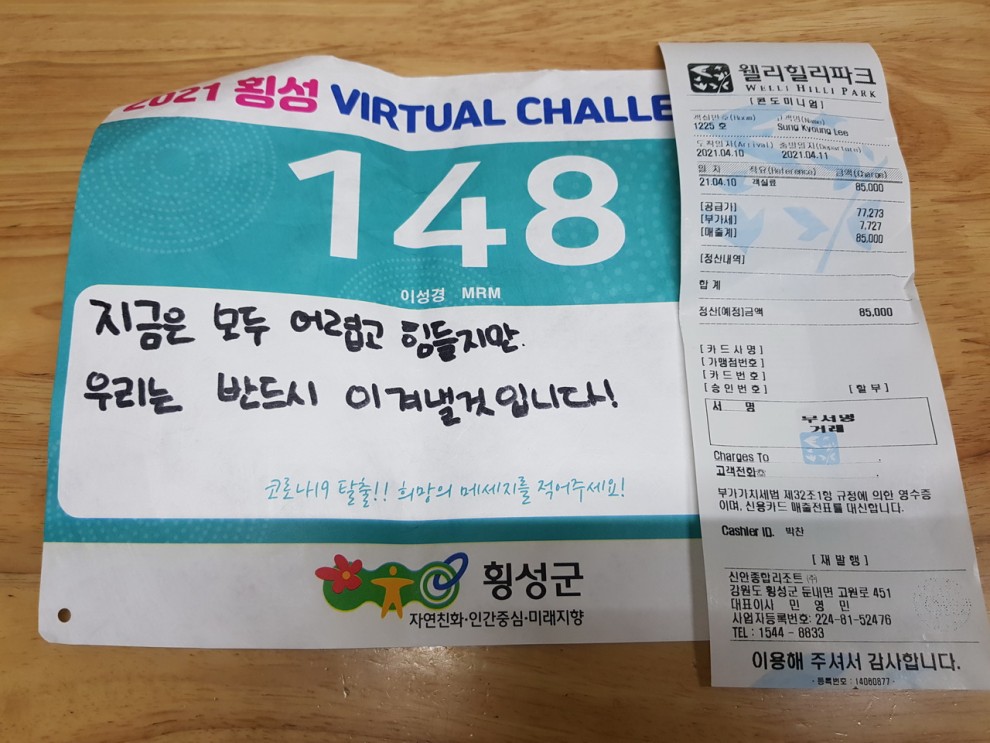 2021 횡성 VIRTUAL CHALLE
148
이성경 MRM
지금은 모두 어렵고 힘들지만.
우리는 반드시 이겨낼것입니다!
코로나19 탈출!! 희망의 메세지를 적어주세요!
횡성군
자연친화·인간중심·미래지향
웰리힐리파크
WELLI HILLI PARK
[콘도미니엄]
객실번호(Room) 고객명(Name)
1225 호 Sung Kyoung Lee
도착일자(Arrival) 출발일자(Departure)
2021.04.10 2021.04.11
일 자 적요(Reference) 금액(Charge)
21.04.10 객실료 85,000
[공급가] 77,273
[부가세] 7,727
[매출계] 85,000
[정산내역]
합 계
정산(예정)금액 85,000
[카드사명]
[가맹점번호]
[카드번호]
[승인번호] [할부]
서 명
무서명
거래
Charges To
고객전화☎
부가가치세법 제32조1항 규정에 의한 영수증
이며, 신용카드 매출전표를 대신합니다.
Cashier ID. 박찬
[재발행]
신안종합리조트 ㈜
강원도 횡성군 둔내면 고원로 451
대표이사 민 영 민
사업자등록번호: 224-81-52476
TEL : 1544 - 8833
이용해 주셔서 감사합니다.
- 등록번호 : 14080877 -